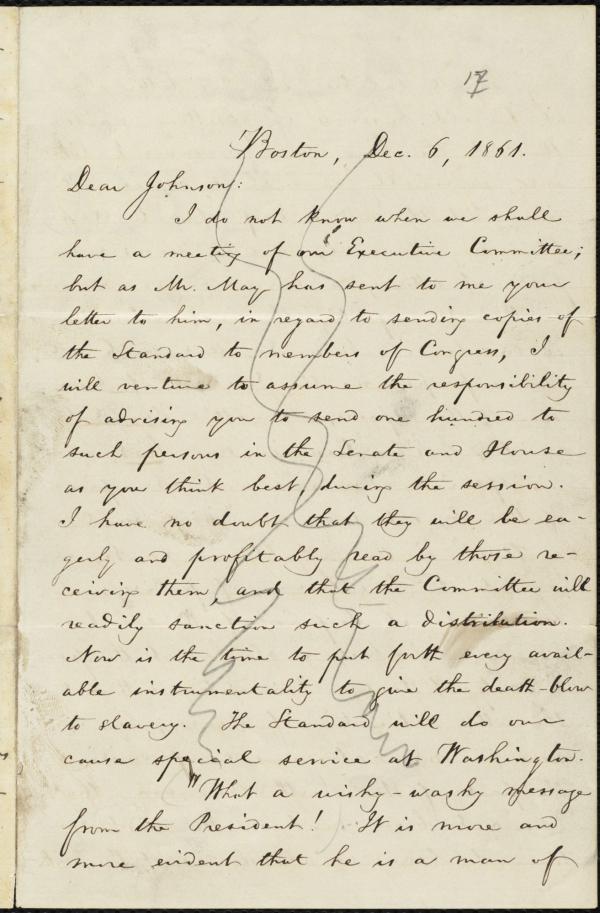 17
Boston, Dec. 6, 1861.
Dear Johnson:
I do not know when we shall
have a meeting of our Executive Committee;
but as Mr. May has sent to me your
letter to him, in regard to sending copies of
the Standard to members of Congress, I
will venture to assume the responsibility
of advising you to send one hundred to
such persons in the Senate and House
as you think best, during the session.
I have no doubt that they will be ea-
gerly and profitably read by those re-
ceiving them, and that the Committee will
readily sanction such a distribution.
Now is the time to put forth every avail-
able instrumentality to give the death-blow
to slavery. The Standard will do our
cause special service at Washington.
"What a wishy-washy message
from the President! It is more and
more evident that he is a man of